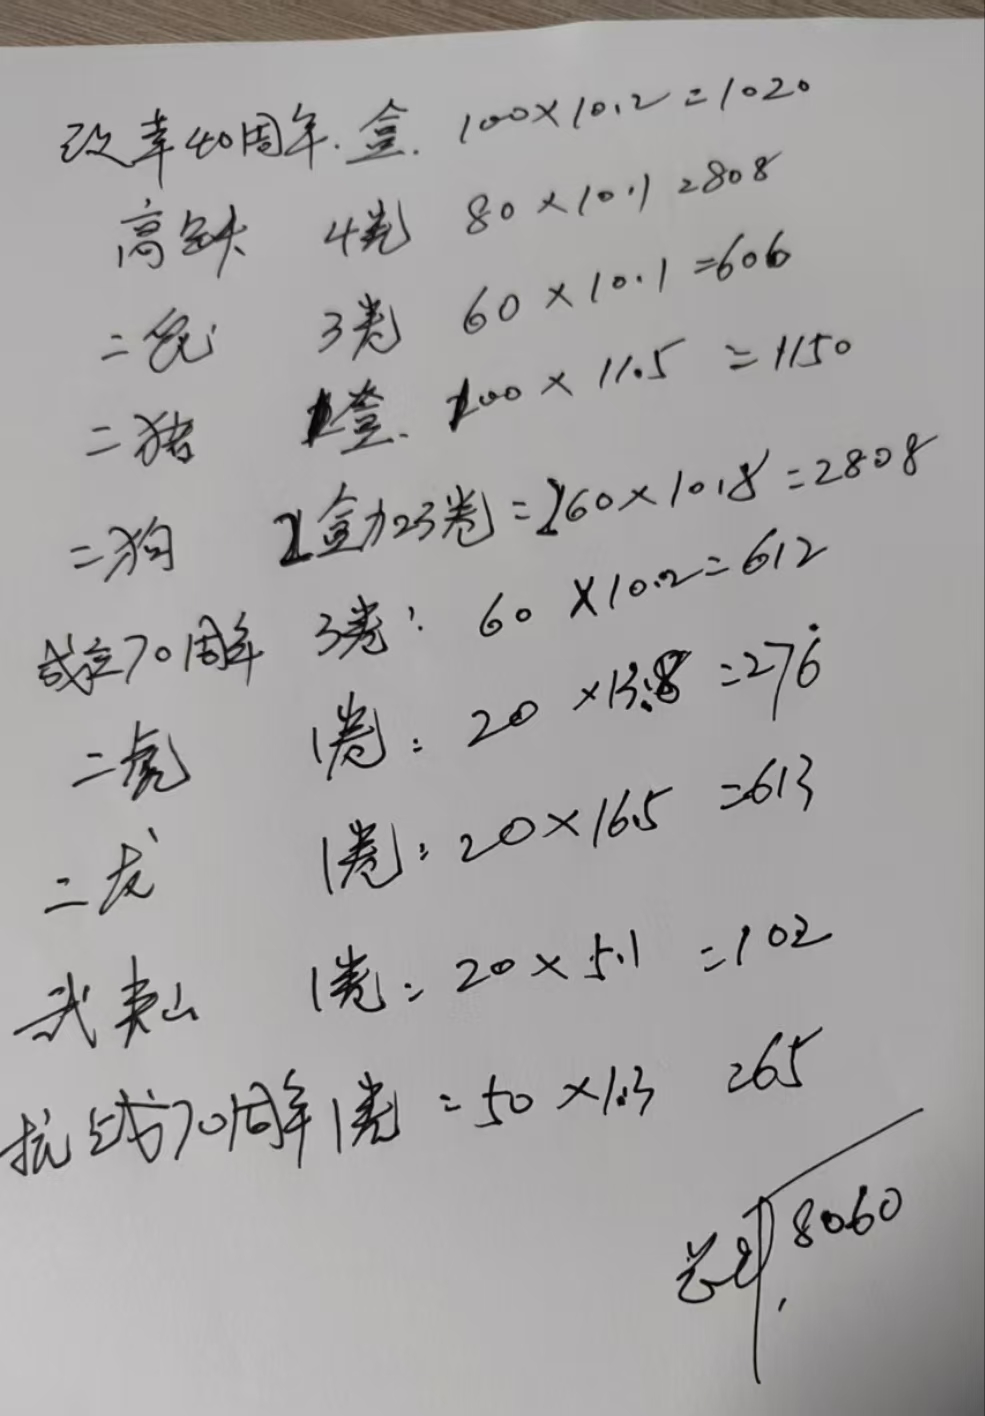 改革40周年.盒. 100×10.2=1020
高铁 4卷 80×10.1=808
二轮 3卷 60×10.1=606
二猪 1盒. 100×11.5=1150
二狗 2盒加3卷=260×10.8=2808
成立70周年 3卷: 60×10.2=612
二虎 1卷: 20×13.8=276
二龙 1卷: 20×16.5=613
武夷山 1卷: 20×5.1=102
抗战70周年1卷=50×1.3=65
总计 8060